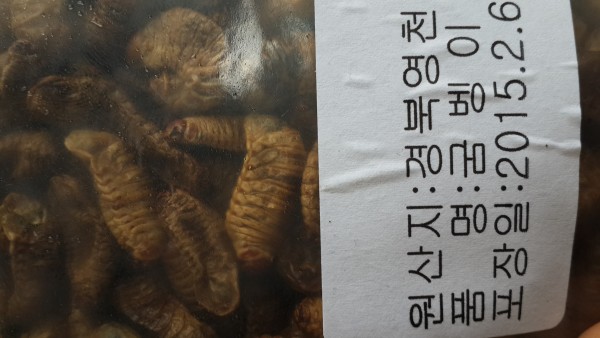 원산지:경북영천
품명:굼벵이
포장일:2015.2.6